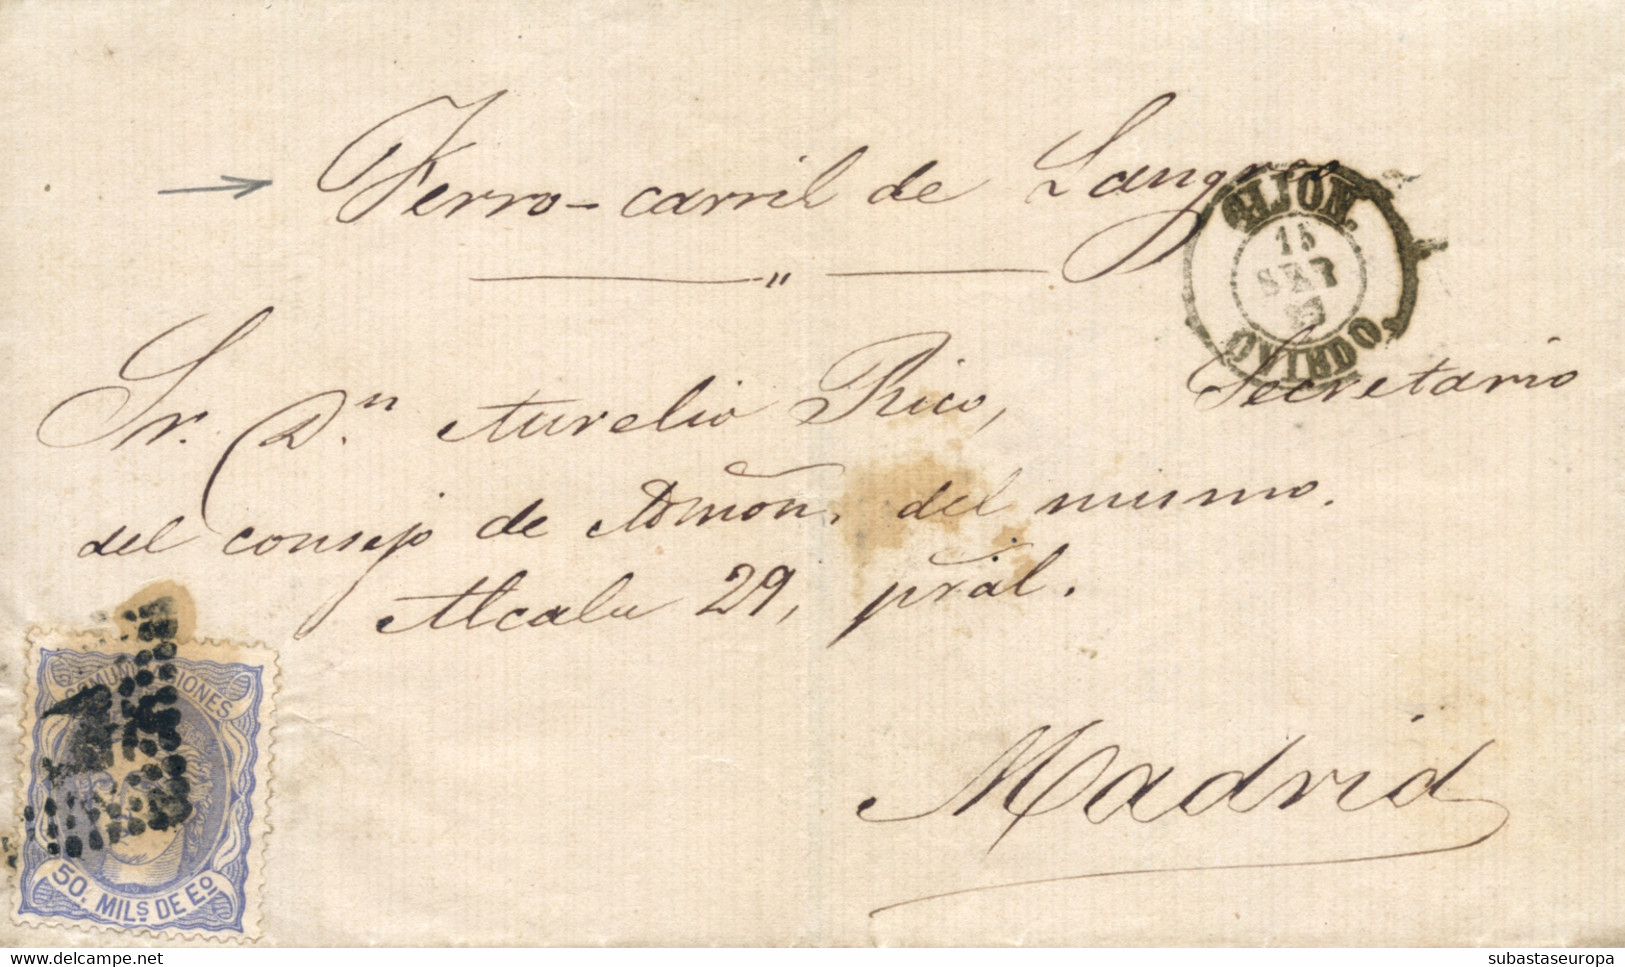 Ferro-carril de Langreo
"
GIJON.
15
SET
OVIEDO.
Sr. Dn. Aurelio Rico, Secretario
del consejo de Admōn. del mismo.
Alcala 29, pral.
Madrid
COMUNICACIONES
50. MILS DE EO
subastaseuropa